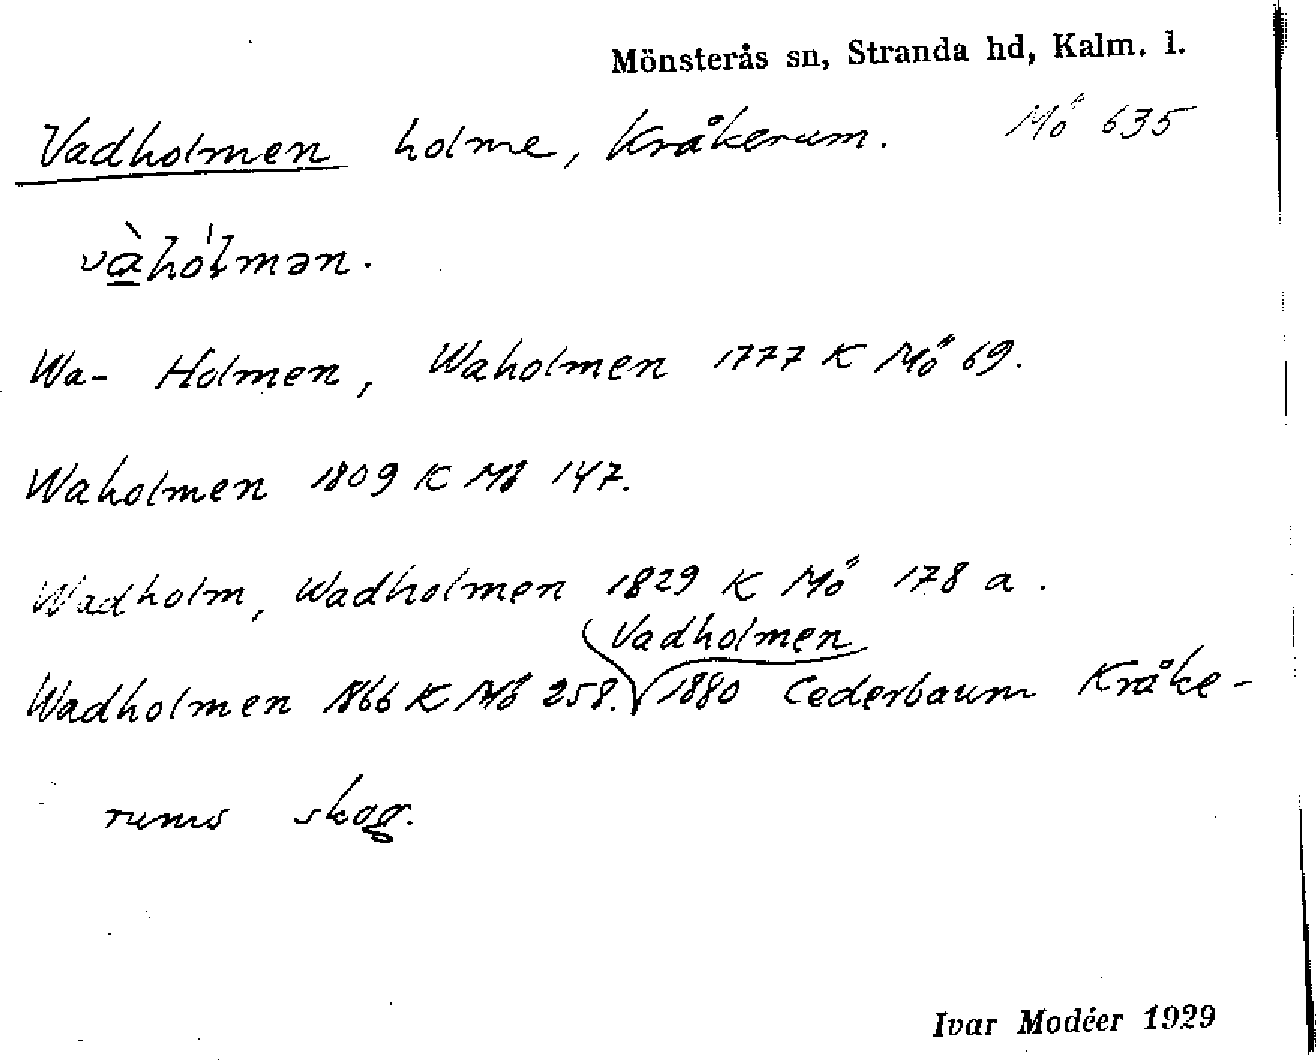 Mönsterås sn, Stranda hd, Kalm. l.
Vadholmen holme, Kråkerum. Mö 635
và̱hól̀mən.
Wa- Holmen, Waholmen 1777 K Mö 69.
Waholmen 1809 K Mö 147.
Wadholm, Wadholmen 1829 K Mö 178 a.
Vadholmen
Wadholmen 1866 K Mö 258. 1880 Cederbaum Kråke-
rums skog.
Ivar Modéer 1929